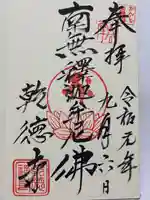 奉拝
令和元年
九月六日
南無釋迦牟尼佛
乾徳寺